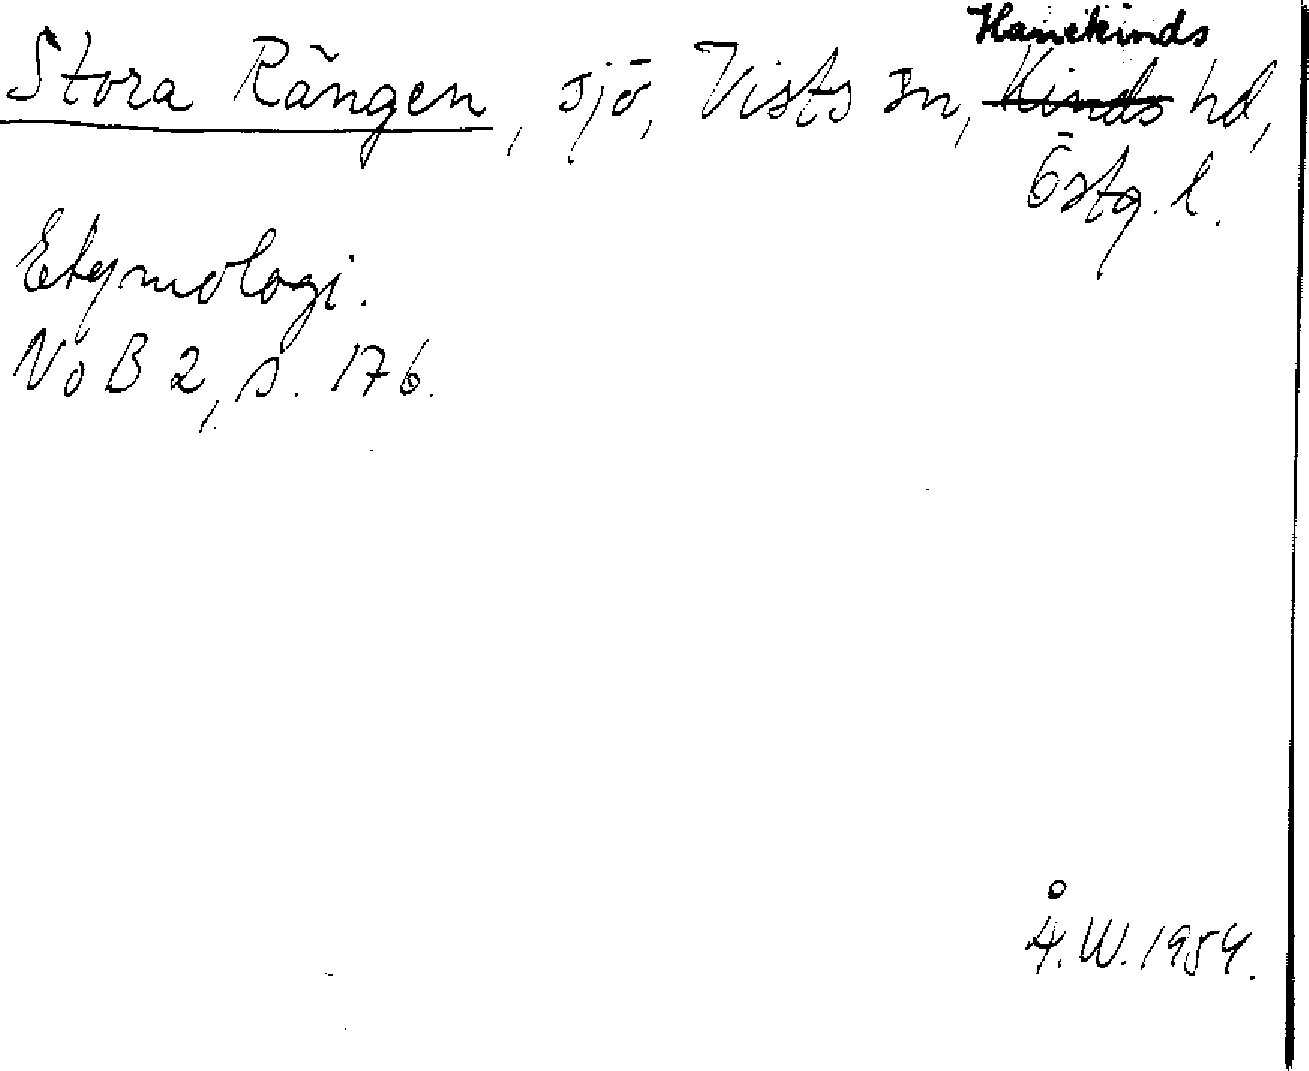 Hanekinds
Stora Rängen, sjö, Vists sn, Kinds hd,
Östg. l.
Etymologi.
NoB 2, s. 176.
Å.W. 1954.